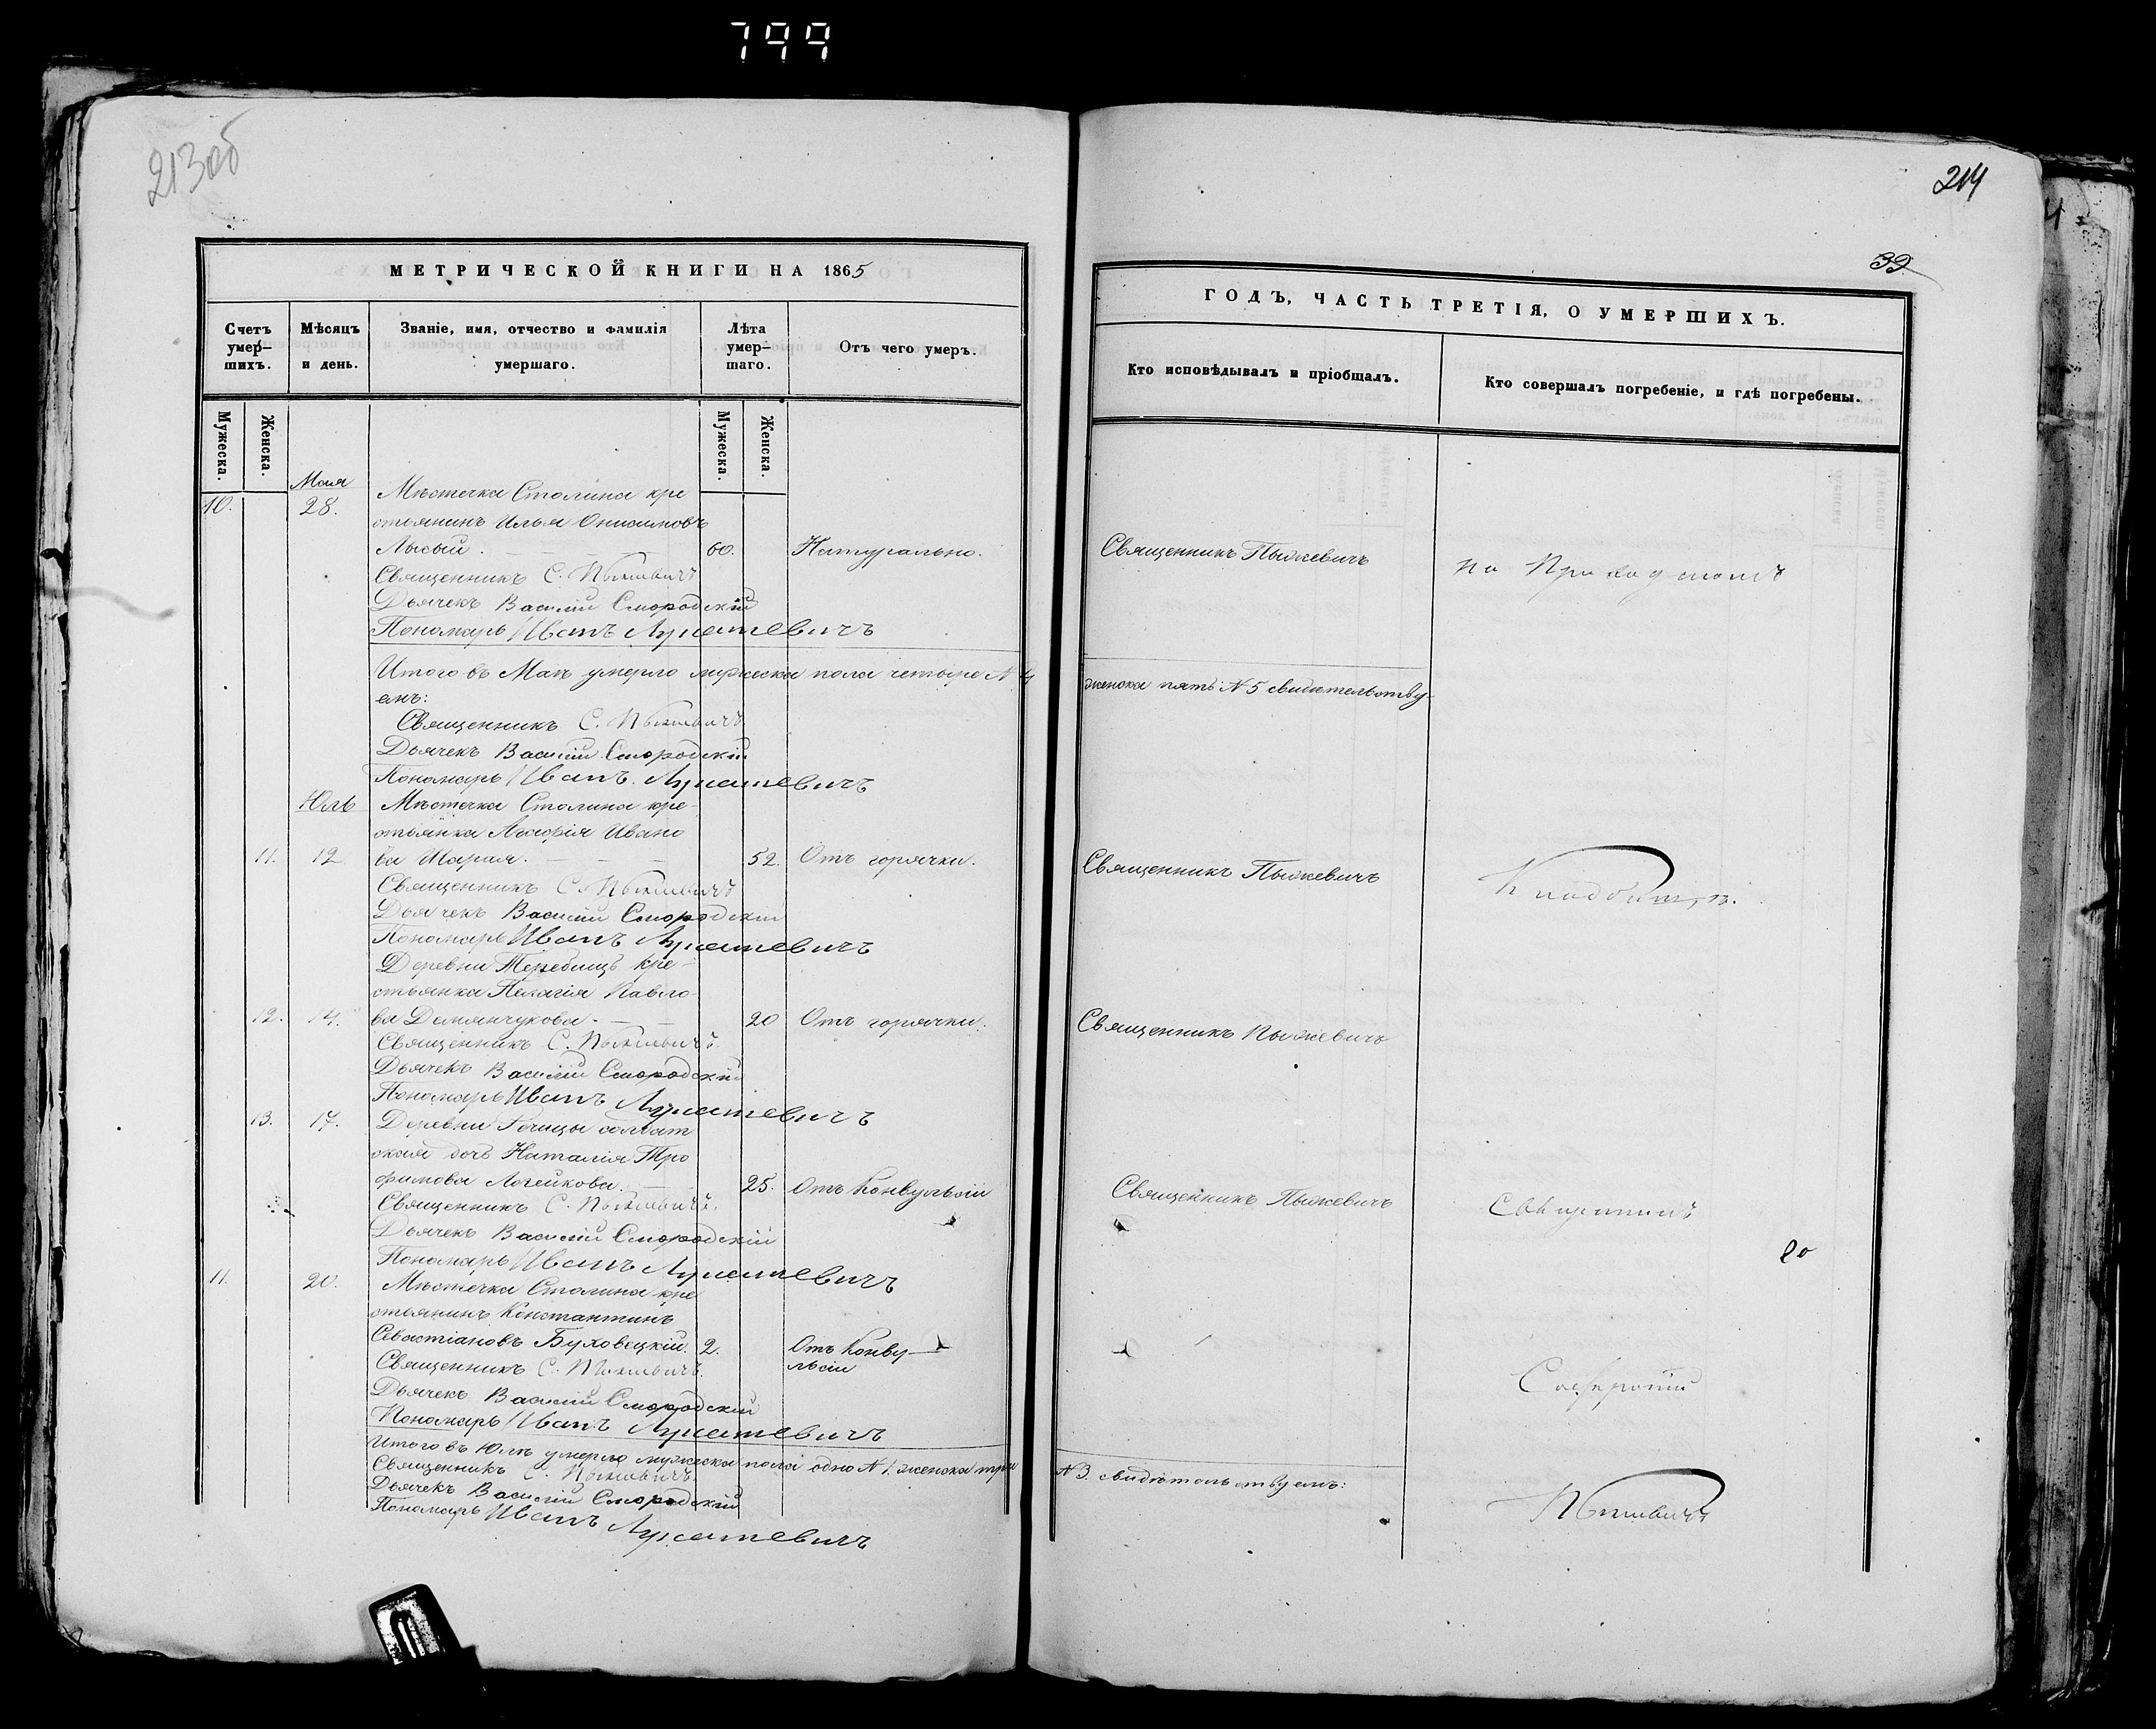 799
213 об
214
39
МЕТРИЧЕСКОЙ КНИГИ НА 1865
Счетъ умер-шихъ.
Мѣсяцъ и день.
Званіе, имя, отчество и фамилія умершаго.
Лѣта умер-шаго.
Отъ чего умеръ.
Мужеска.
Женска.
Мужеска.
Женска.
Мая
10. 28. Мѣстечка Столина кре
стьянинъ Илья Онисимовъ
Лысый. 60. Натурально.
Священникъ С. Пыжевичъ
Дьячекъ Василій Смородскій
Пономарь Иванъ
Итого въ Маѣ умерло мужеска пола четыре N 4
емъ:
Священникъ С. Пыжевичъ
Дьячекъ Василій Смородскій
Пономарь Иванъ
Юль
Мѣстечка Столина кре-
стьянка Ивано
11. 12. ва Шарая. 52. Отъ горячки.
Священникъ С. Пыжевичъ
Дьячекъ Василій Смородскій
Пономарь Иванъ
Деревни Теребищъ кре-
стьянка Пелагія Павло-
12. 14. ва Демянчукова. 20 Отъ горячки.
Священникъ С. Пыжевичъ.
Дьячекъ Василій Смородскій
Пономарь Иванъ
13. 17. Деревни Речицы солдат
ская дочь Наталія Тро
фимова 25. Отъ Конвульсіи
Священникъ С. Пыжевичъ.
Дьячекъ Василій Смородскій
Пономарь Иванъ
11. 20. Мѣстечка Столина кре
стьянинъ Константинъ
Севастіановъ Буховецкій. 2. Отъ Конву-
льсіи
Священникъ С. Пыжевичъ.
Дьячекъ Василій Смородскій
Пономарь Иванъ
Итого въ Юлѣ умерло мужеска пола одно N 1. женска три
Священникъ С. Пыжевичъ
Дьячекъ Василій Смородскій
Пономарь Иванъ
ГОДЪ, ЧАСТЬ ТРЕТІЯ, О УМЕРШИХЪ.
Кто исповѣдывалъ и пріобщалъ.
Кто совершалъ погребеніе, и гдѣ погребены.
Священникъ Пыжевичъ
на Приходскомъ
женска пять N 5 свидѣтельству-
Священникъ Пыжевичъ
Кладбищѣ.
Священникъ Пыжевичъ
Священникъ Пыжевичъ
N 3. свидѣтельствуемъ:
Пыжевичъ